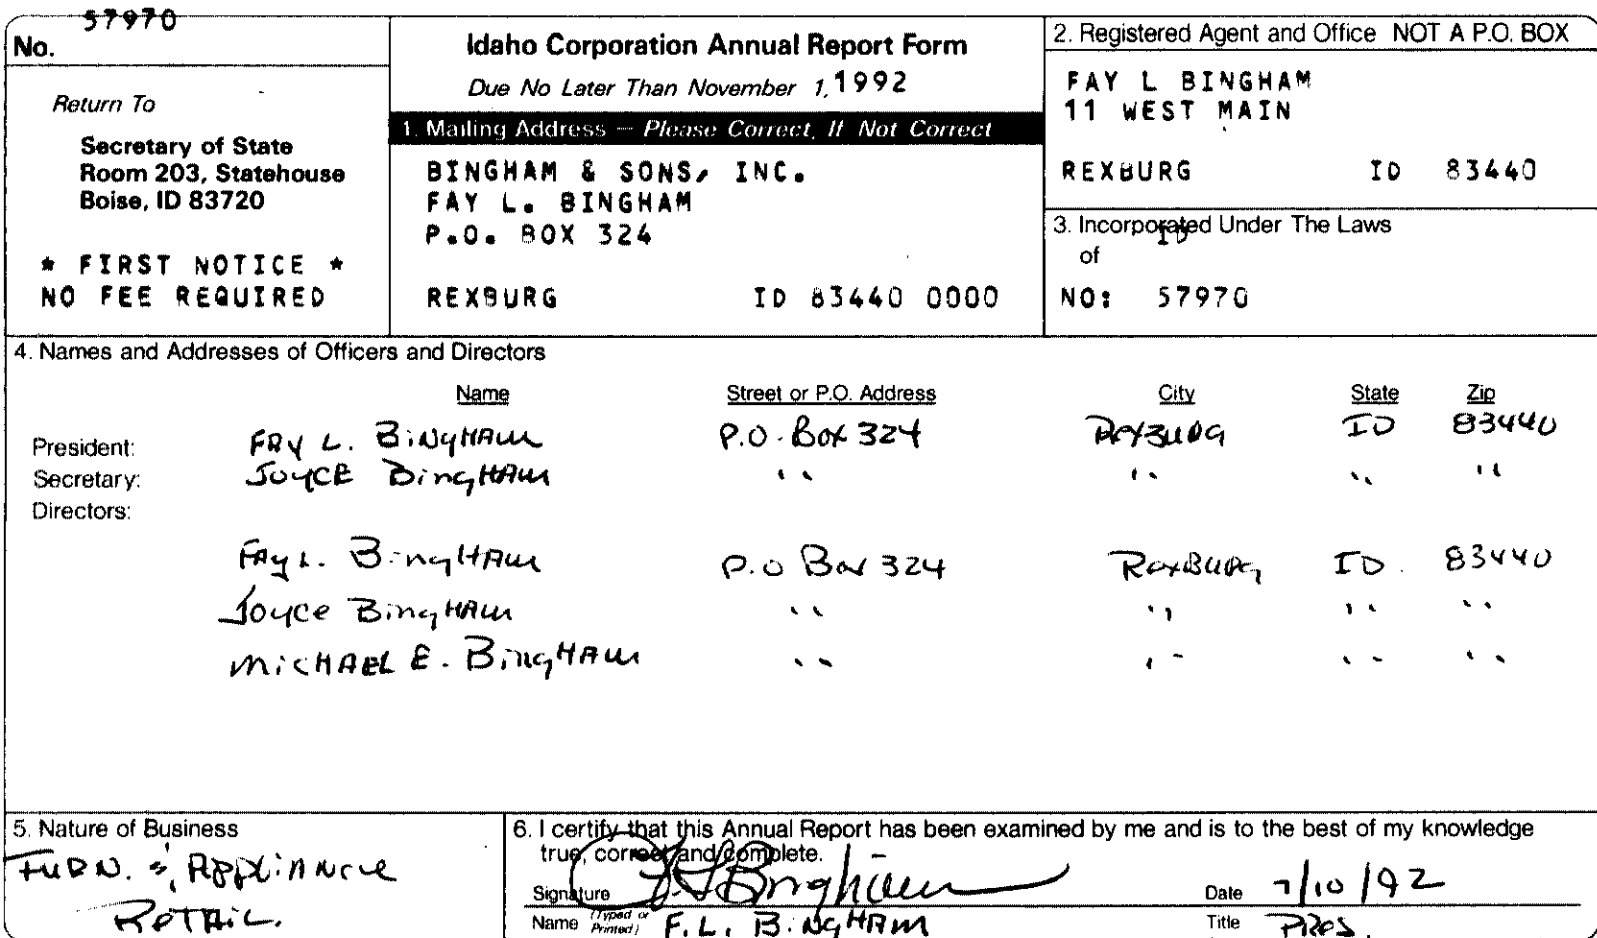 57970
No.
Return To
Secretary of State
Room 203, Statehouse
Boise, ID 83720
* FIRST NOTICE *
NO FEE REQUIRED
Idaho Corporation Annual Report Form
Due No Later Than November 1, 1992
1. Mailing Address — Please Correct, If Not Correct
BINGHAM & SONS, INC.
FAY L. BINGHAM
P.O. BOX 324
REXBURG ID 83440 0000
2. Registered Agent and Office NOT A P.O. BOX
FAY L BINGHAM
11 WEST MAIN
REXBURG ID 83440
3. Incorporated Under The Laws
of ID
NO: 57970
4. Names and Addresses of Officers and Directors
Name Street or P.O. Address City State Zip
President: FAY L. BINGHAM P.O. Box 324 REXBURG ID 83440
Secretary: JOYCE BINGHAM " " " "
Directors:
FAY L. BINGHAM P.O Box 324 REXBURG ID. 83440
Joyce BingHAM " " " "
MICHAEL E. BingHAM " " " "
5. Nature of Business
FURN. & APPLIANCE
RETAIL.
6. I certify that this Annual Report has been examined by me and is to the best of my knowledge
true, correct and complete.
Signature F L Bingham Date 7/10/92
Name (Typed or Printed) F. L. BINGHAM Title PRES.